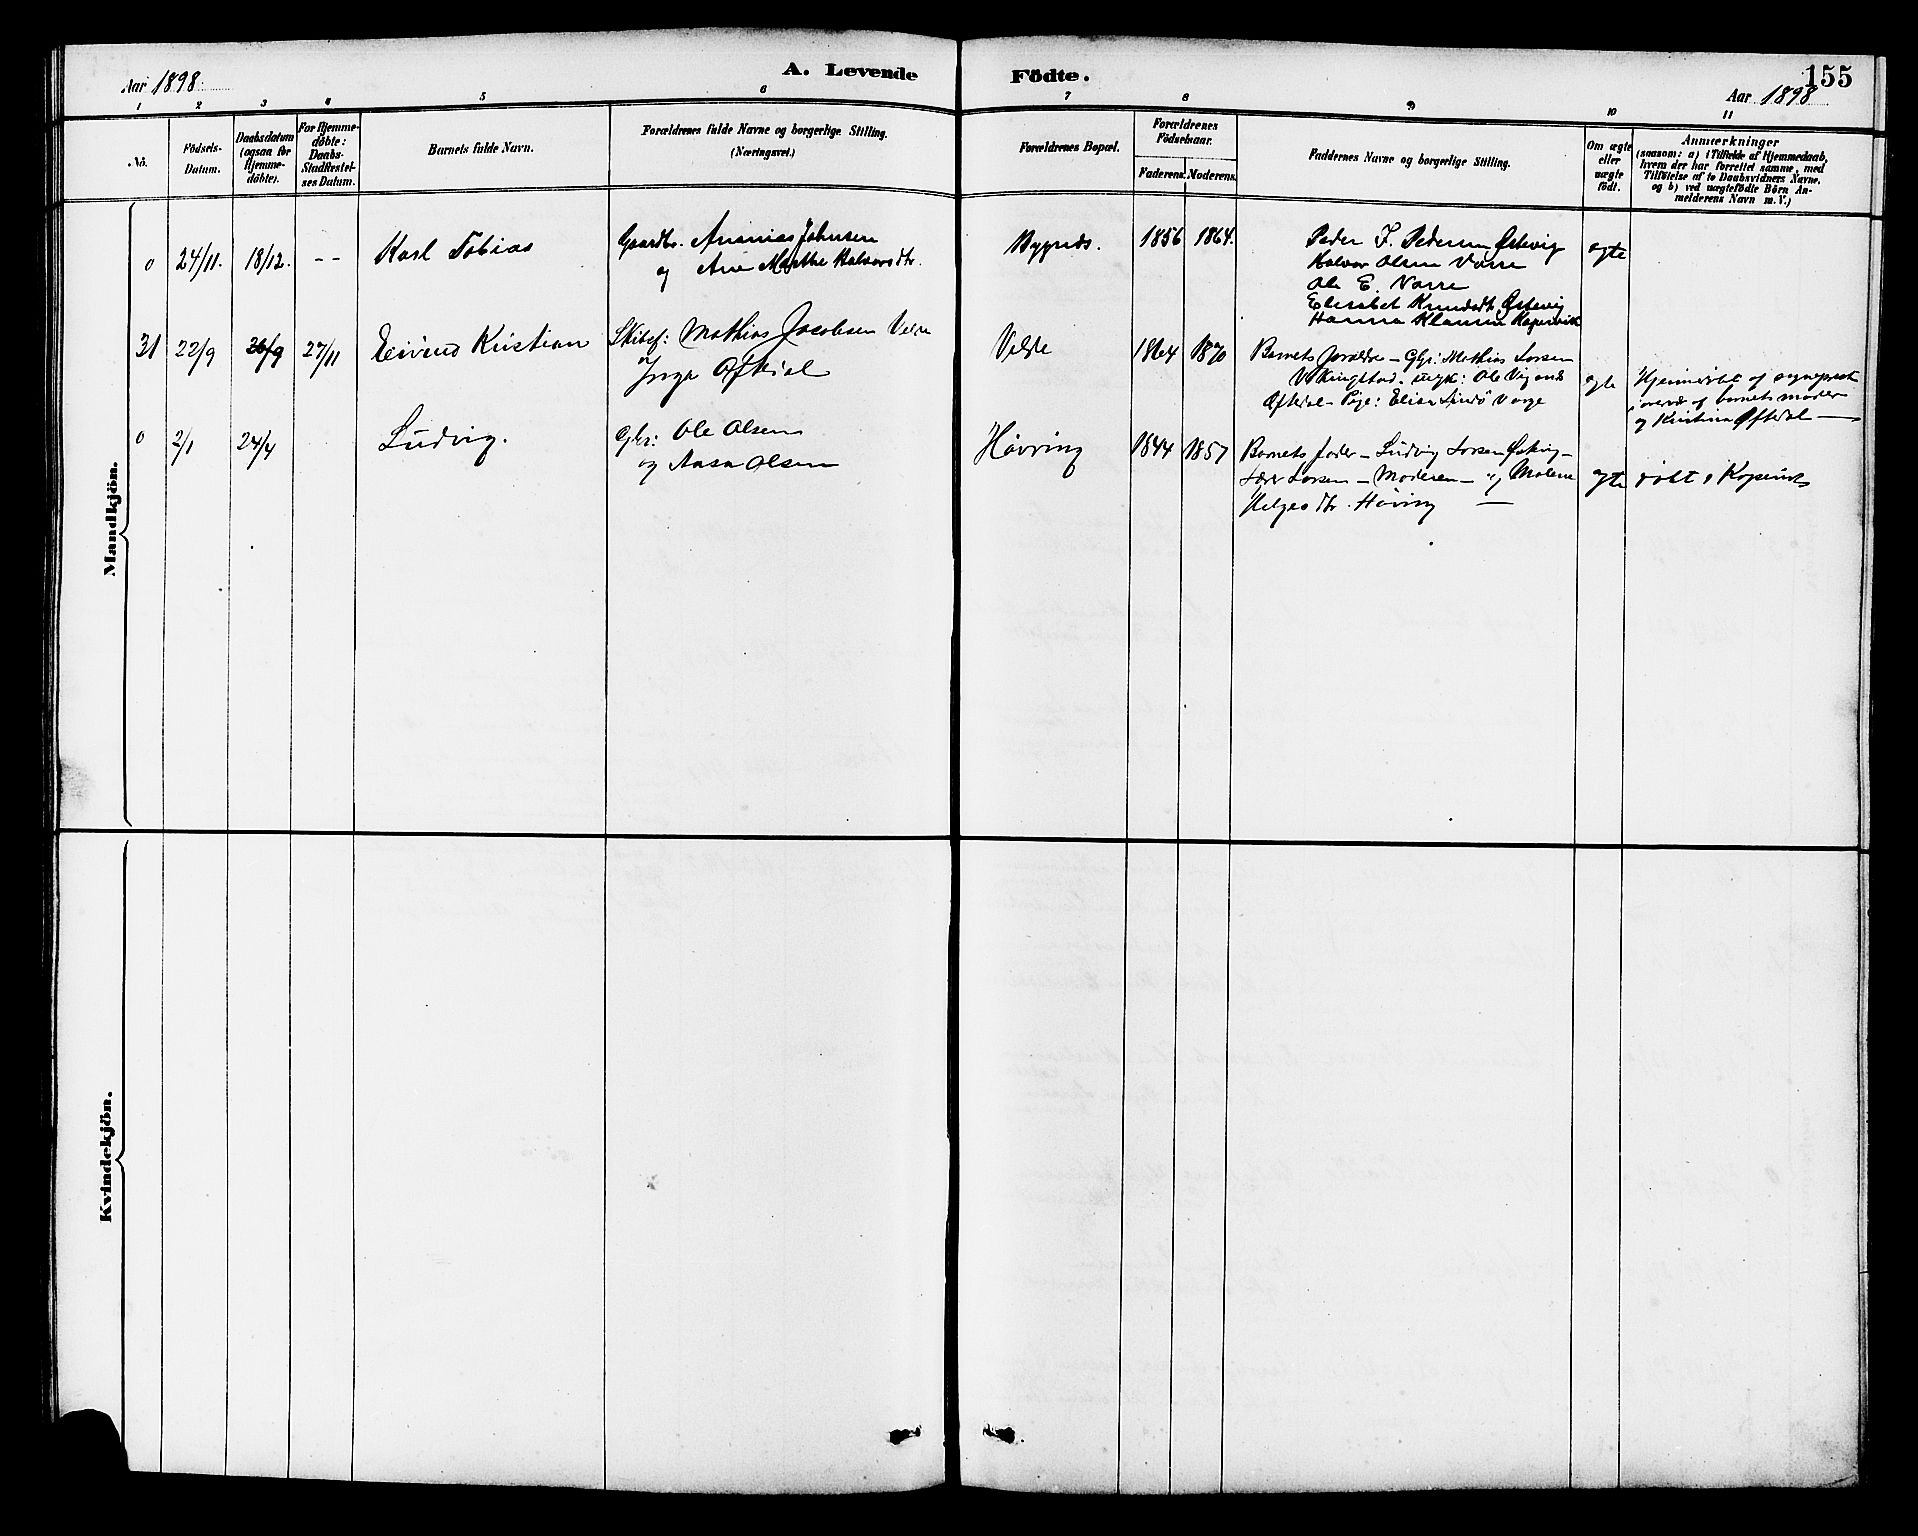 Aar 1898.
A. Levende
Födte.
155
Aar 1898
1 2 3 4 5 6 7 8 9 10 11
No.
Födsels-
Datum.
Daabsdatum
(ogsaa for
Hjemme-
döbte).
For Hjemme-
döbte:
Daabs-
Stadfæstel-
ses Datum.
Barnets fulde Navn.
Forældrenes fulde Navne og borgerlige Stilling.
(Næringsvei.)
Forældrenes Bopæl.
Forældrenes
Födselsaar.
Faderens. Moderens.
Faddernes Navne og borgerlige Stilling.
Om ægte
eller
uægte
födt.
Anmærkninger
(saasom: a) i Tilfælde af Hjemmedaab,
hvem der har forrettet samme, med
Tilföielse af to Daabsvidners Navne,
og b) ved uægtefödte Börn An-
melderens Navn m. V.)
Mandkjön.
0 24/11. 18/12. -- Karl Tobias
Gaardbr. Ananias Johnsen
og Ane Marthe Halvorsdtr.
Bygnes. 1856 1864.
Peder J. Pedersen Østevig
Halvor Olsen Vorre
Ole E. Vorre
Elisabet Knudsdt. Østevig
Hanna Kopervik
ægte
31 22/9 26/9 27/11 Eivind Kristian
Skibsf: Mathias Jacobsen Velde
og Inga Oftedal
Velde 1864 1870
Barnets Forældre - Gbr: Mathias Larsen
Vikingstad. ungk: Ole
Oftedal - Pige: Elisa Lindö
ægte
Hjemmedöbt af sogneprest
i overvær af barnets moder
og Kristina Oftedal
0 2/1 24/4 Ludvig.
Gbr: Ole Olsen
og Aasa Olsen
Hövring 1844 1857
Barnets fader - Ludvig Larsen
Larsen - Moderen - og Malene
Helgesdtr. Hövring
ægte döbt i Kopervik
Kvindekjön.